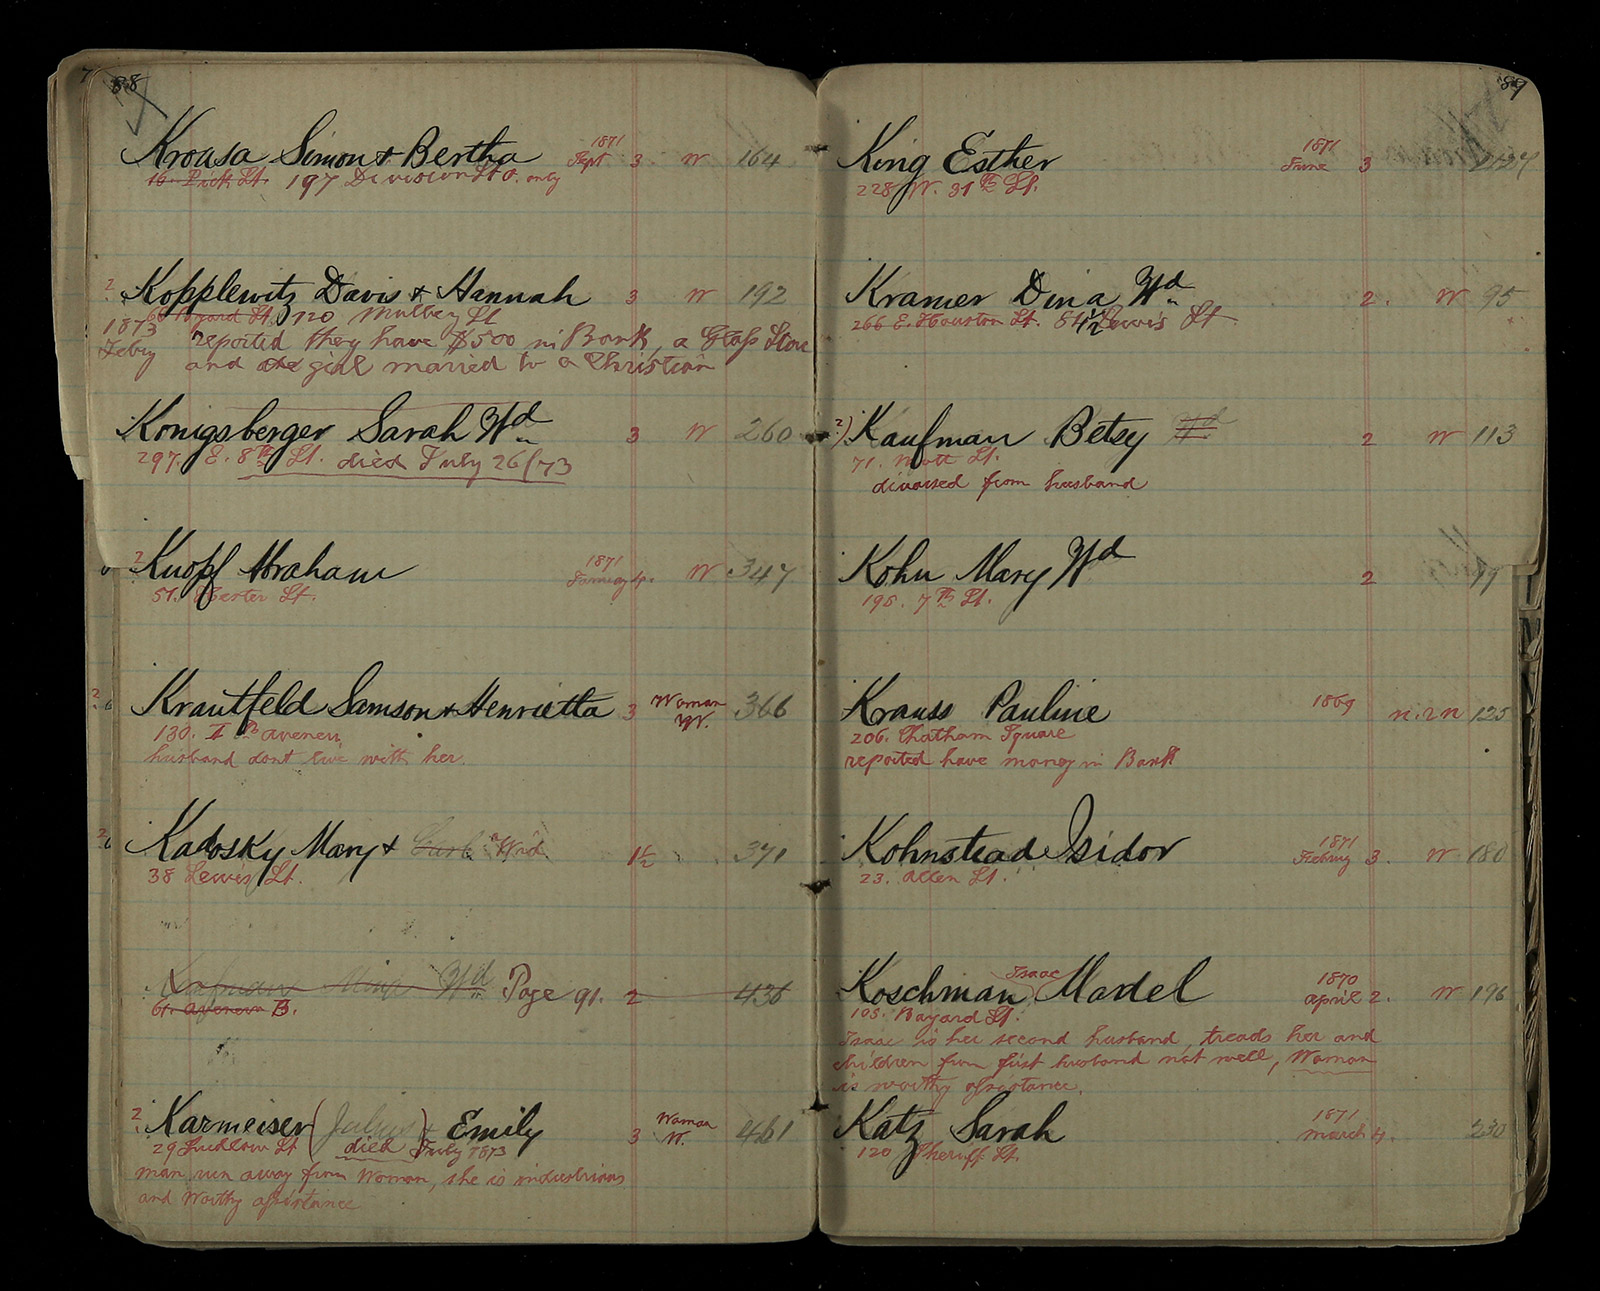 88
Krousa Simon & Bertha 1871 Sept 3 W 164
16. Pitt St. 197 Division St. only
2 Kopplewitz Davis & Hannah 3 W 192
Bayard St. 120 Mulbery St
1873 Febry reported they have $500 in Bank, a Glass Store
and one girl married to a Christian
Konigsberger Sarah Wd 3 W 260
297. E. 8th St. died July 26/73
2 Knopf Abraham 1871 January 4. W 347
51. Baxter St.
2 Krautfeld Samson & Henrietta 3 Woman W. 366
130. 1st aveneu
husband dont live with her.
2 Kadosky Mary & Wid 1½ 371
38 Lewis St.
Kaufman Mina Wd Page 91. 2 436
61. aveneu B.
2 Karmeiser (Julius) & Emily 3 Woman W. 461
29 Ludlow St died July 1873
man run away from Woman, she is industrious
and Worthy assistance
89
King Esther 1871 June 3
228 W. 31th St.
Kramer Dina Wd 2. W 95
266 E. Houston St. 54½ Lewis St
2) Kaufman Betsy Wd 2 W 113
71. Mott St.
divorsed from husband
Kohn Mary Wd 2
195. 7th St.
Krauss Pauline 1869 125
206. Chatham Square
reported have money in Bank
Kohnstead Isidor 1871 Febury 3. W 180
23. Allen St.
Koschman Isaac Madel 1870 april 2. W 196
105. Bayard St.
Isaac is her second husband, treads her and
children from first husband not well, Woman
is worthy assistance.
Katz Sarah 1871 March 4. 230
120 Sheriff St.